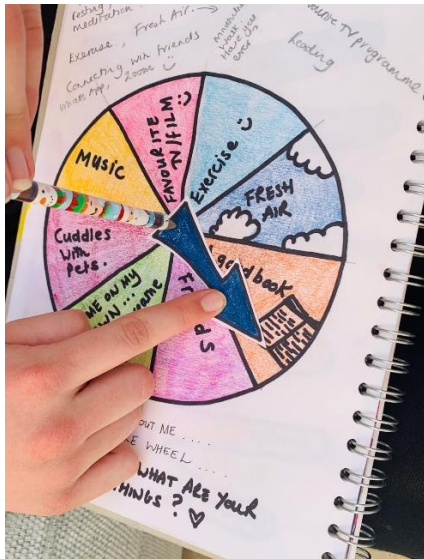 resting,
meditation.
Exercise, Fresh Air.
Connecting with friends
WhatsApp, Zoom
walk
Have you
ever
TV programme
Reading
Music
FAVOURITE
TV/FILM
Exercise
FRESH
AIR
good book
Cuddles
with
Pets.
ME ON MY
OUT ME ....
WHEEL ....
WHAT ARE YOUR
THINGS?